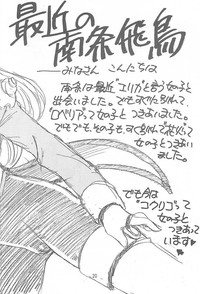 最近の
南条飛鳥
——みなさん こんにちは
南条は最近"エリカ"と言う女の子と
出会いました。でもすぐに別れて、
"ロベリア"って女の子とつきあいました。
でもでも、その子も、すぐ別れて
って
女の子とつきあい
ました。
でも今は
"コウリン"って
女の子と
つきあって
います♥